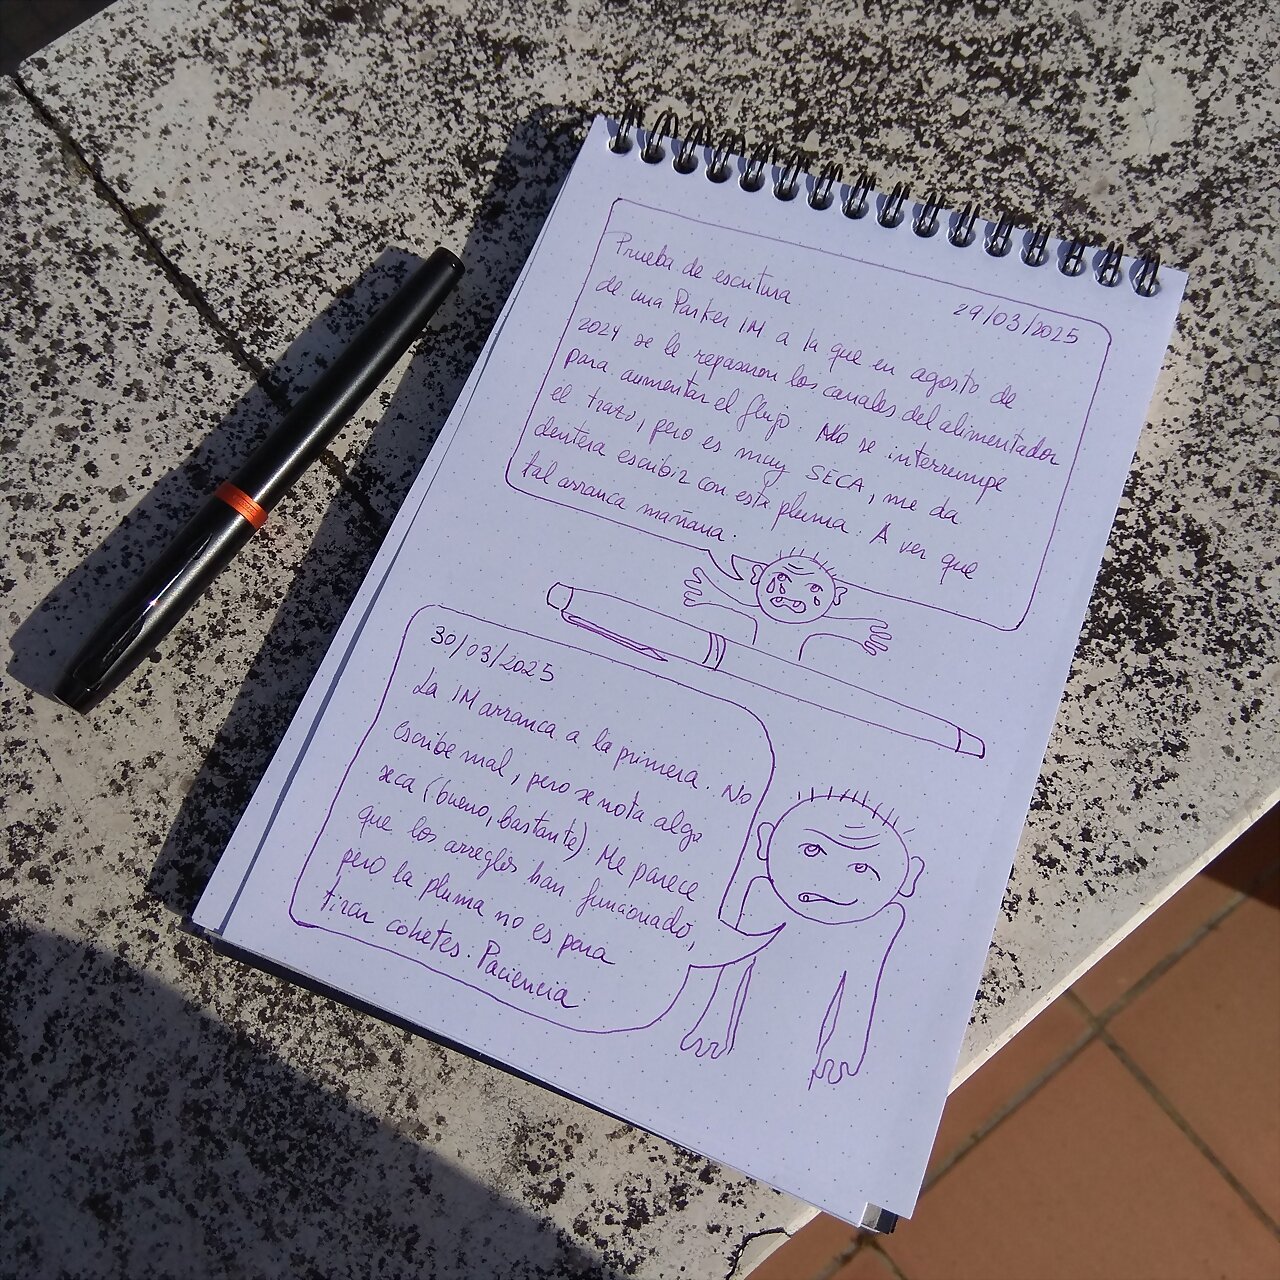 Prueba de escritura
29/03/2025
de una Parker IM a la que en agosto de
2024 se le repasaron los canales del alimentador
para aumentar el flujo. No se interrumpe
el trazo, pero es muy SECA, me da
dentera escribir con esta pluma. A ver que
tal arranca mañana.
30/03/2025
La IM arranca a la primera. No
escribe mal, pero se nota algo
seca (bueno, bastante). Me parece
que los arreglos han funcionado,
pero la pluma no es para
tirar cohetes. Paciencia